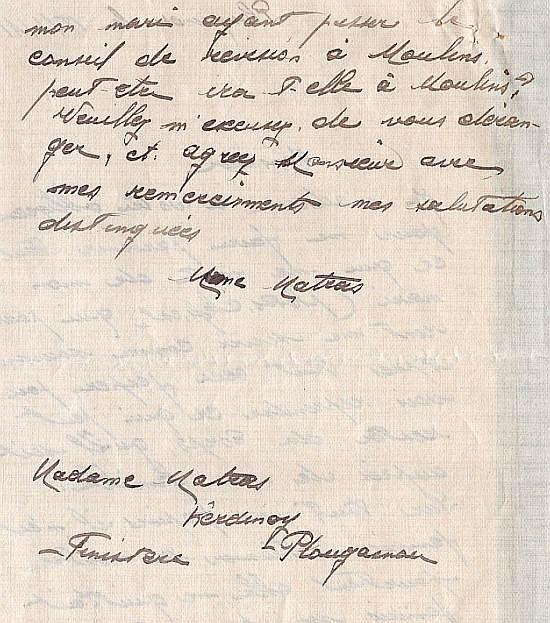 mon mari ayant passer le
conseil de revision à Moulins.
peut-etre ira t-elle à Moulins?
Veuillez m'excusez. de vous déran-
ger, et. agréez Monsieur avec
mes remerciments mes salutations
distinguées
Mme Matras
Madame Matras
Kerdinoy
Plougasnou
- Finistère